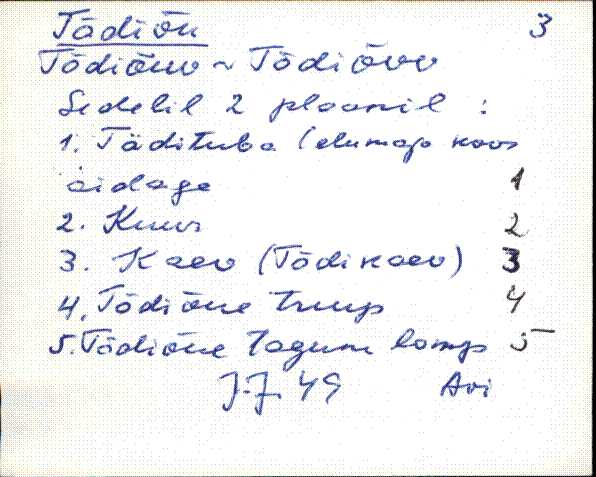 Tädiõu 3
Tädiõuv ~ Tädiõvv
Sedelil 2 plaanil :
1. Tädituba (elumaja koos
aidaga 1
2. Kuur 2
3. Kaev (Tädikaev) 3
4. Tädiõue tiik 4
5. Tädiõue tagum lomp 5
J.J. 49 Avi